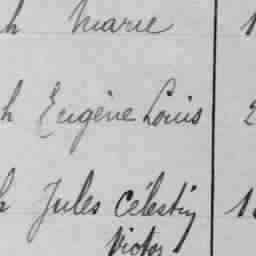 h Marie 1
h Eugène Louis 2
h Jules Célestin 1
Victor